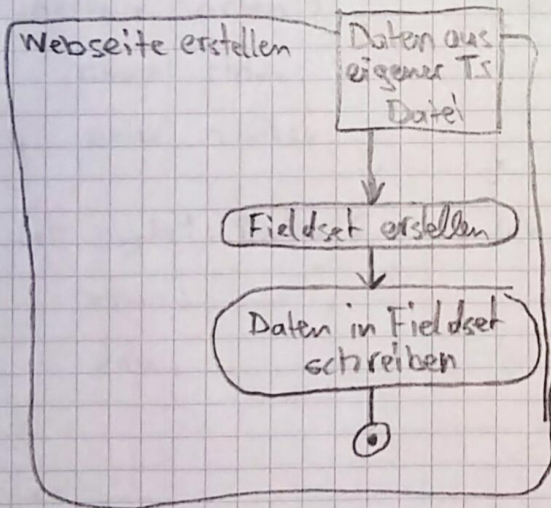 Webseite erstellen
Daten aus
eigener Ts
Datei
Fieldset erstellen
Daten in Fieldset
schreiben